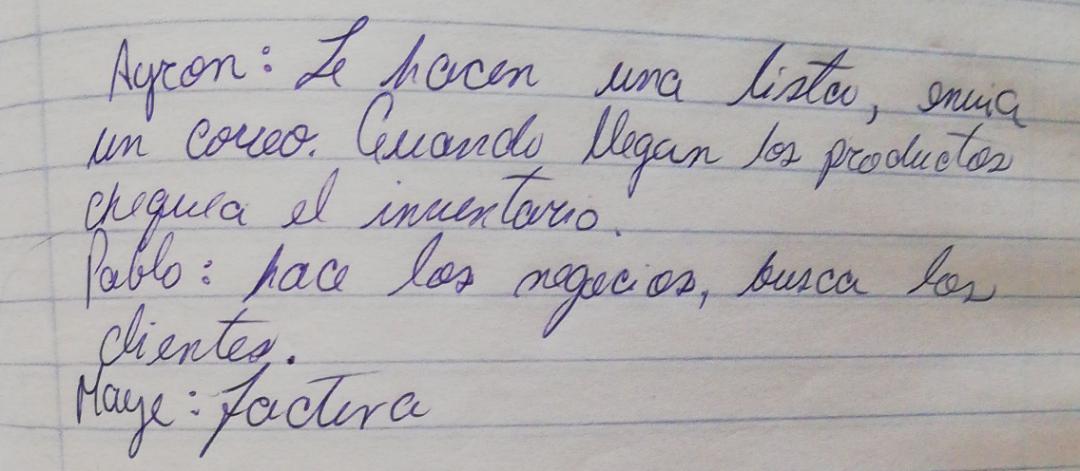 Ayron: Le hacen una lista, envia
un correo. Cuando llegan los productos
chequea el inventario.
Pablo: hace los negocios, busca los
clientes.
Maye: factura